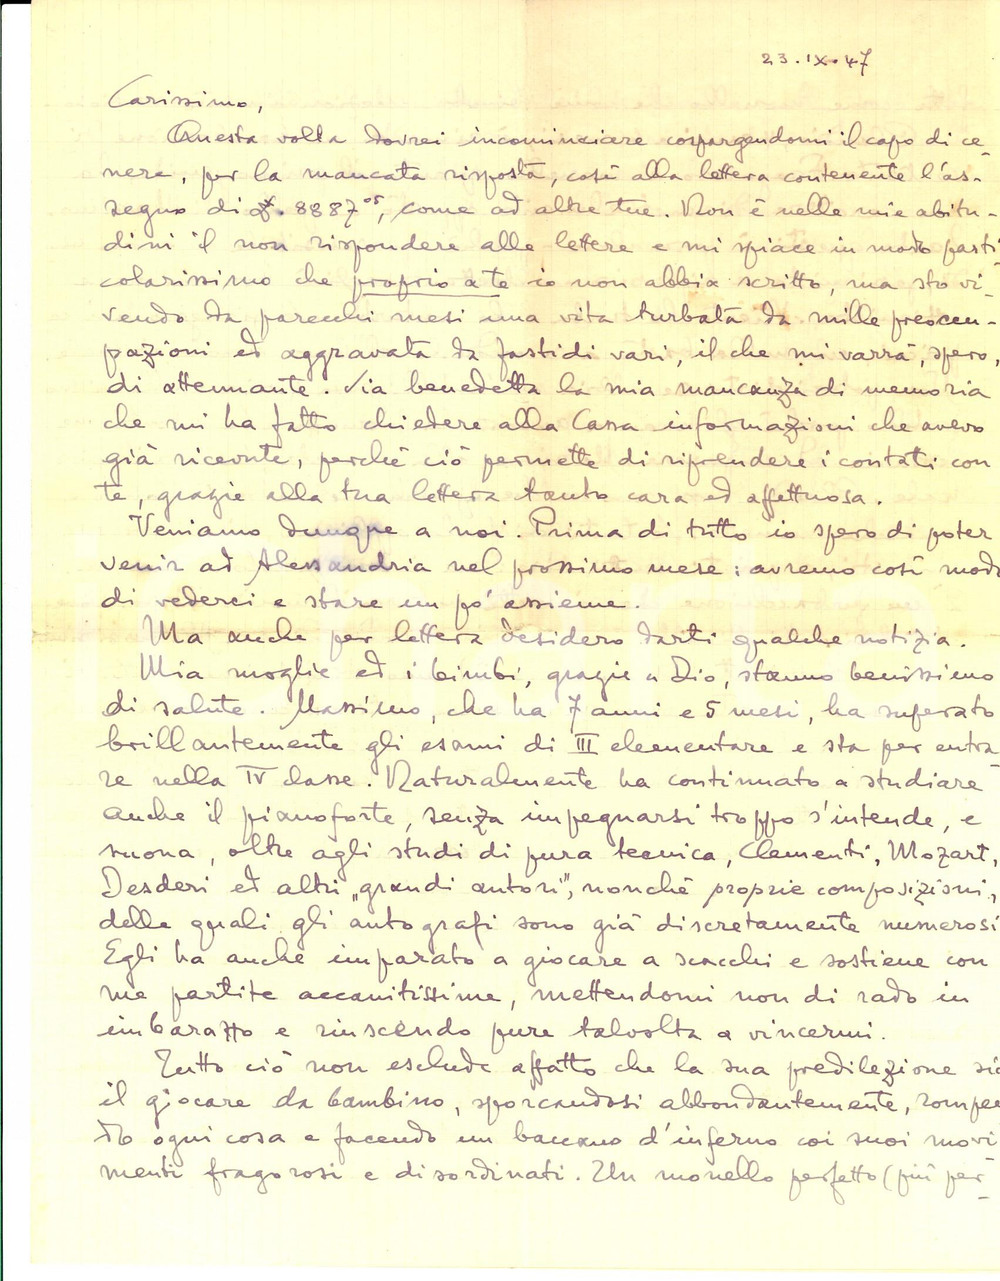 23.IX.47
Carissimo,
Questa volta dovrei incominciare cospargendomi il capo di ce-
nere, per la mancata risposta, così alla lettera contenente l'as-
segno di 8387.05, come ad altre tue. Non è nelle mie abitu-
dini il non rispondere alle lettere e mi spiace in modo parti
colarissimo che proprio a te io non abbia scritto, ma sto vi-
vendo da parecchi mesi una vita turbata da mille preoccu-
pazioni ed aggravata da fastidi vari, il che mi varrà, spero,
di attenuante. Sia benedetta la mia mancanza di memoria
che mi ha fatto chiedere alla Cassa informazioni che avevo
già ricevute, perchè ciò permette di riprendere i contatti con
te, grazie alla tua lettera tanto cara ed affettuosa.
Veniamo dunque a noi. Prima di tutto io spero di poter
venir ad Alessandria nel prossimo mese: avremo così modo
di vederci e stare un pò assieme.
Ma anche per lettera desidero darti qualche notizia.
Mia moglie ed i bimbi, grazie a Dio, stanno benissimo
di salute. Massimo, che ha 7 anni e 5 mesi, ha superato
brillantemente gli esami di III elementare e sta per entra
re nella IV classe. Naturalmente ha continuato a studiare
anche il pianoforte, senza impegnarsi troppo s'intende, e
suona, oltre agli studi di pura tecnica, Clementi, Mozart,
Desderi ed altri "grandi autori", nonchè proprie composizioni,
delle quali gli autografi sono già discretamente numerosi
Egli ha anche imparato a giocare a scacchi e sostiene con
me partite accanitissime, mettendomi non di rado in
imbarazzo e riuscendo pure talvolta a vincermi.
Tutto ciò non esclude affatto che la sua predilezione sia
il giocare da bambino, sporcandosi abbondantemente, rompen
do ogni cosa e facendo un baccano d'inferno coi suoi movi
menti fragorosi e disordinati. Un monello perfetto (più per-